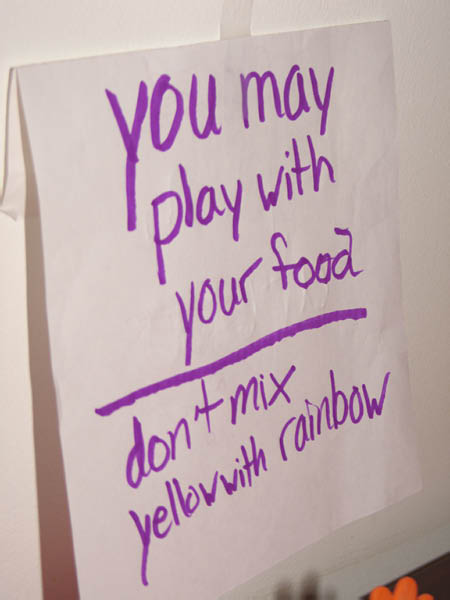 you may
play with
your food
don't mix
yellow with rainbow